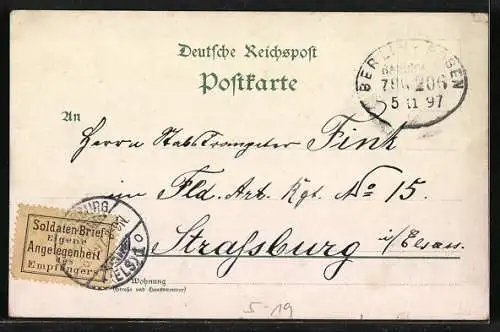 Deutsche Reichspost
Postkarte
An
Herrn Stabstrompeter Fink
im Fld. Art. Rgt. No 15.
Strassburg
i/Elsass
Wohnung
(Straße und Hausnummer)
BERLIN POSEN
206
5 11 97
Soldaten-Brief
Eigene
Angelegenheit
des
Empfängers
BURG
(ELS)
5-19